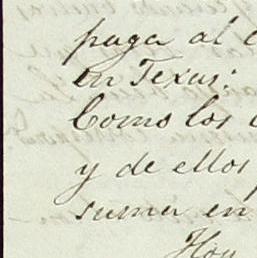 paga al
en Texas:
Como los
y de ellos
suma en
Hoy